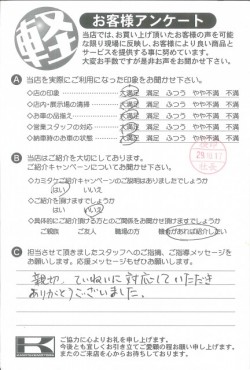 軽
お客様アンケート
当店では、お買い上げ頂いたお客様の声を可能
な限り現場に反映し、お客様により良い商品と
サービスを提供する事に努めています。
大変お手数ですが是非お声をお聞かせ下さい。
A 当店を実際にご利用になった印象をお聞かせ下さい。
◇店の印象 大満足 満足 ふつう やや不満 不満
◇店内・展示場の清掃 大満足 満足 ふつう やや不満 不満
◇お車の品揃え 大満足 満足 ふつう やや不満 不満
◇営業スタッフの対応 大満足 満足 ふつう やや不満 不満
◇納車時のお車の状態 大満足 満足 ふつう やや不満 不満
B 当店はご紹介を大切にしております。
ご紹介キャンペーンについてお聞かせ下さい。
◇カミタケご紹介キャンペーンのご説明はありましたでしょうか
はい いいえ
◇ご紹介を頂けますでしょうか
はい いいえ
◇具体的にご紹介頂ける方とのご関係をお聞かせ頂けますでしょうか
ご親族 ご友人 職場の方 機会があれば紹介したい
C 担当させて頂きましたスタッフへのご指摘、ご指導メッセージを
お願いします。応援メッセージもぜひお願いします。
親切、ていねいに対応していただき
ありがとうございました。
K
ご協力に心よりお礼を申し上げます。
今後とも宜しくお引き立てご愛顧の程お願い申し上げます。
またのご来店を心からお待ちしております。